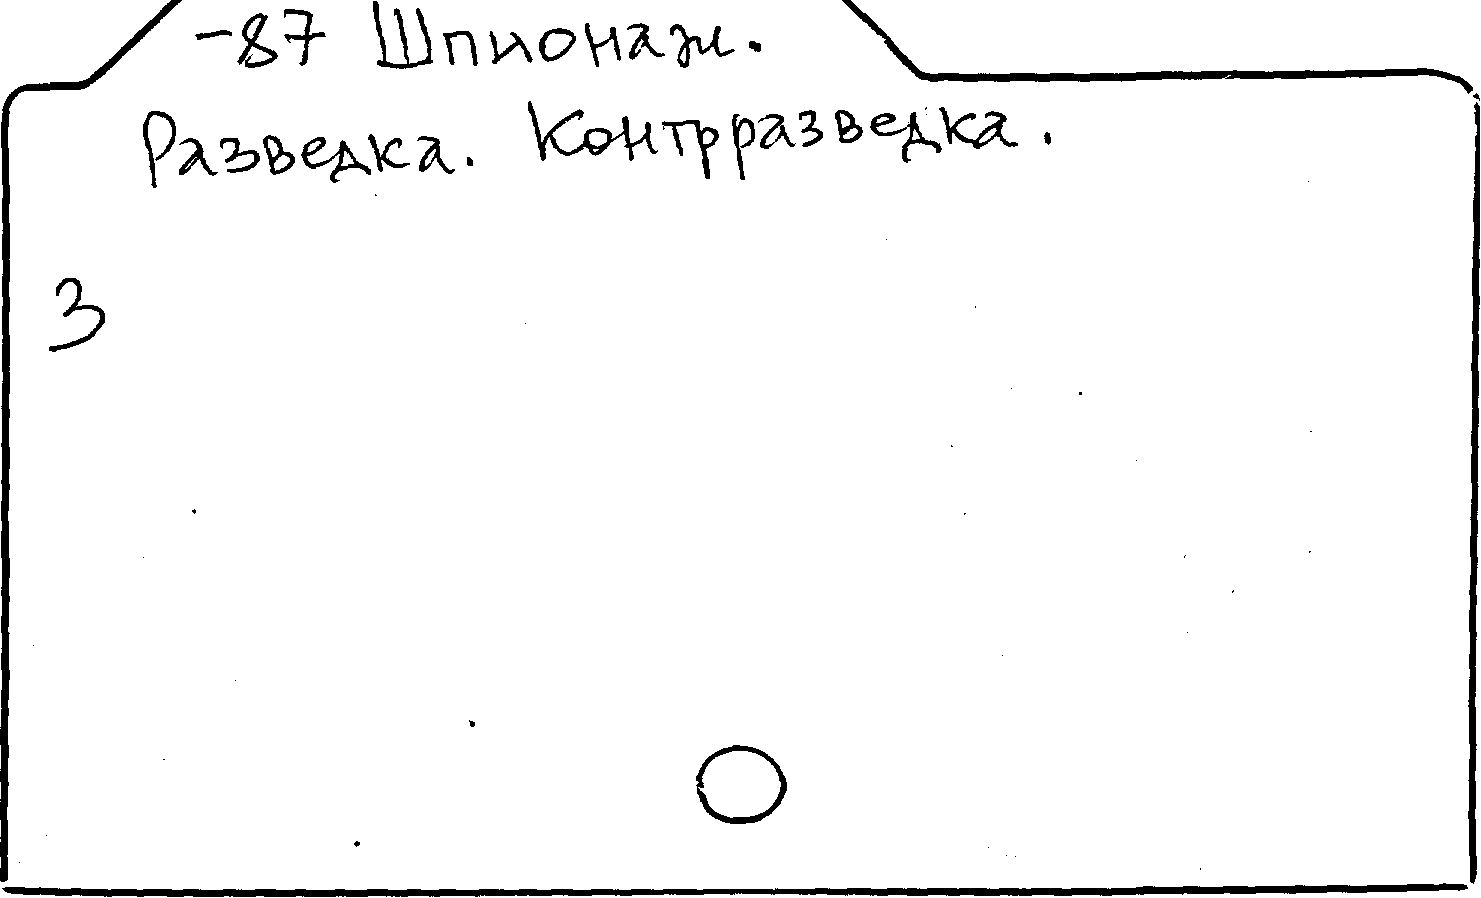 -87 Шпионаж.
Разведка. Контрразведка.
3